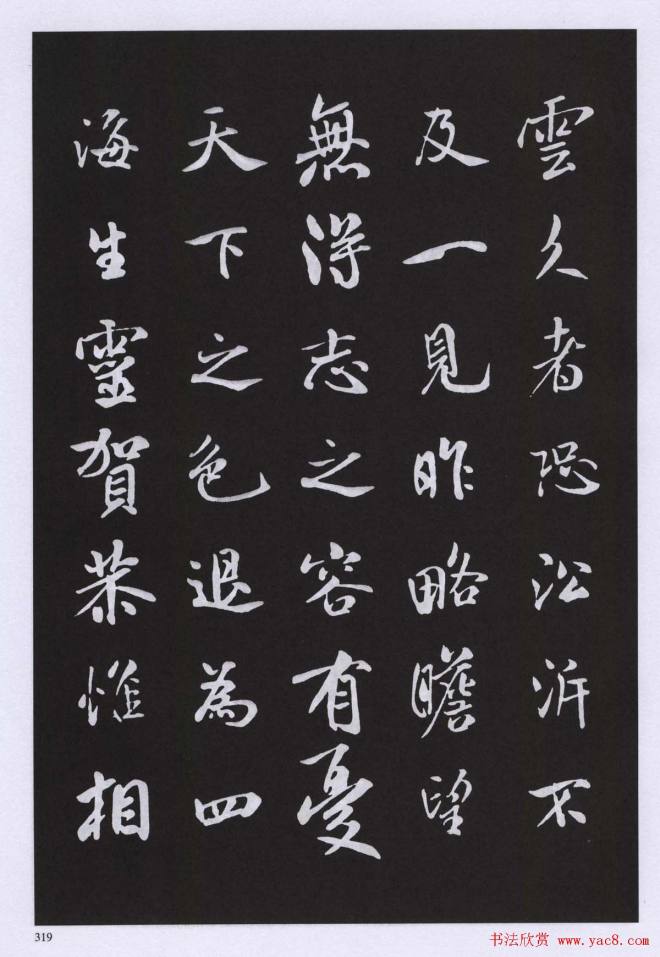 雲久者恐沿泝不
及一見昨略瞻望
無得志之容有憂
天下之色退為四
海生靈賀恭惟相
319
书法欣赏 www.yac8.com